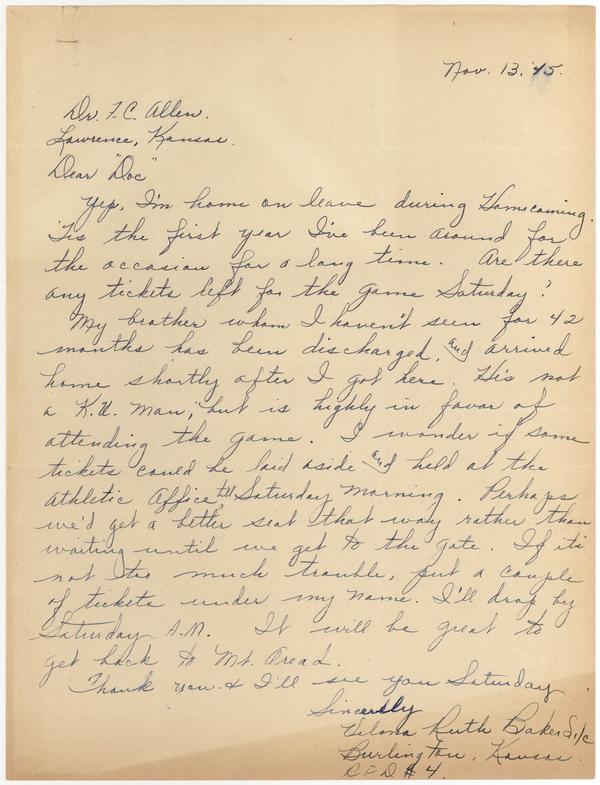 Nov. 13. '45.
Dr. F.C. Allen.
Lawrence, Kansas.
Dear "Doc"
Yep, I'm home on leave during Homecoming.
'Tis the first year I've been around for
the occasion for a long time. Are there
any tickets left for the game Saturday?
My brother whom I haven't seen for 42
months has been discharged, and arrived
home shortly after I got here. He's not
a K.U. Man, but is highly in favor of
attending the game. I wonder if some
tickets could be laid aside and held at the
Athletic Office till Saturday Morning. Perhaps
we'd get a better seat that way rather than
waiting until we get to the gate. If it's
not too much trouble, put a couple
of tickets under my name. I'll drop by
Saturday A.M. It will be great to
get back to Mt. Oread.
Thank you & I'll see you Saturday
Sincerely
Velma Ruth Baker S.1/c
Burlington, Kansas.
R F D # 4.